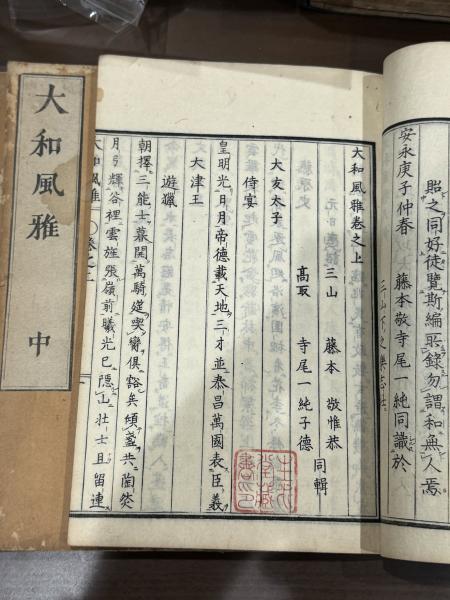 貽之同好徒覽斯編所錄勿謂和無人焉
安永庚子仲春 藤本敬寺尾一純同識於
三山下之樂志社
大和風雅卷之上
三山 藤本 敬惟恭
高取 寺尾一純子德
同輯
大友太子
侍宴
皇明光日月帝德載天地三才並泰昌萬國表臣義
大津王
遊獵
朝擇三能士暮開萬騎筵喫臠俱豁矣傾盞共陶然
月弓輝谷裡雲旌張嶺前曦光已隱山壯士且留連
大和風雅 卷之上
大和風雅 中